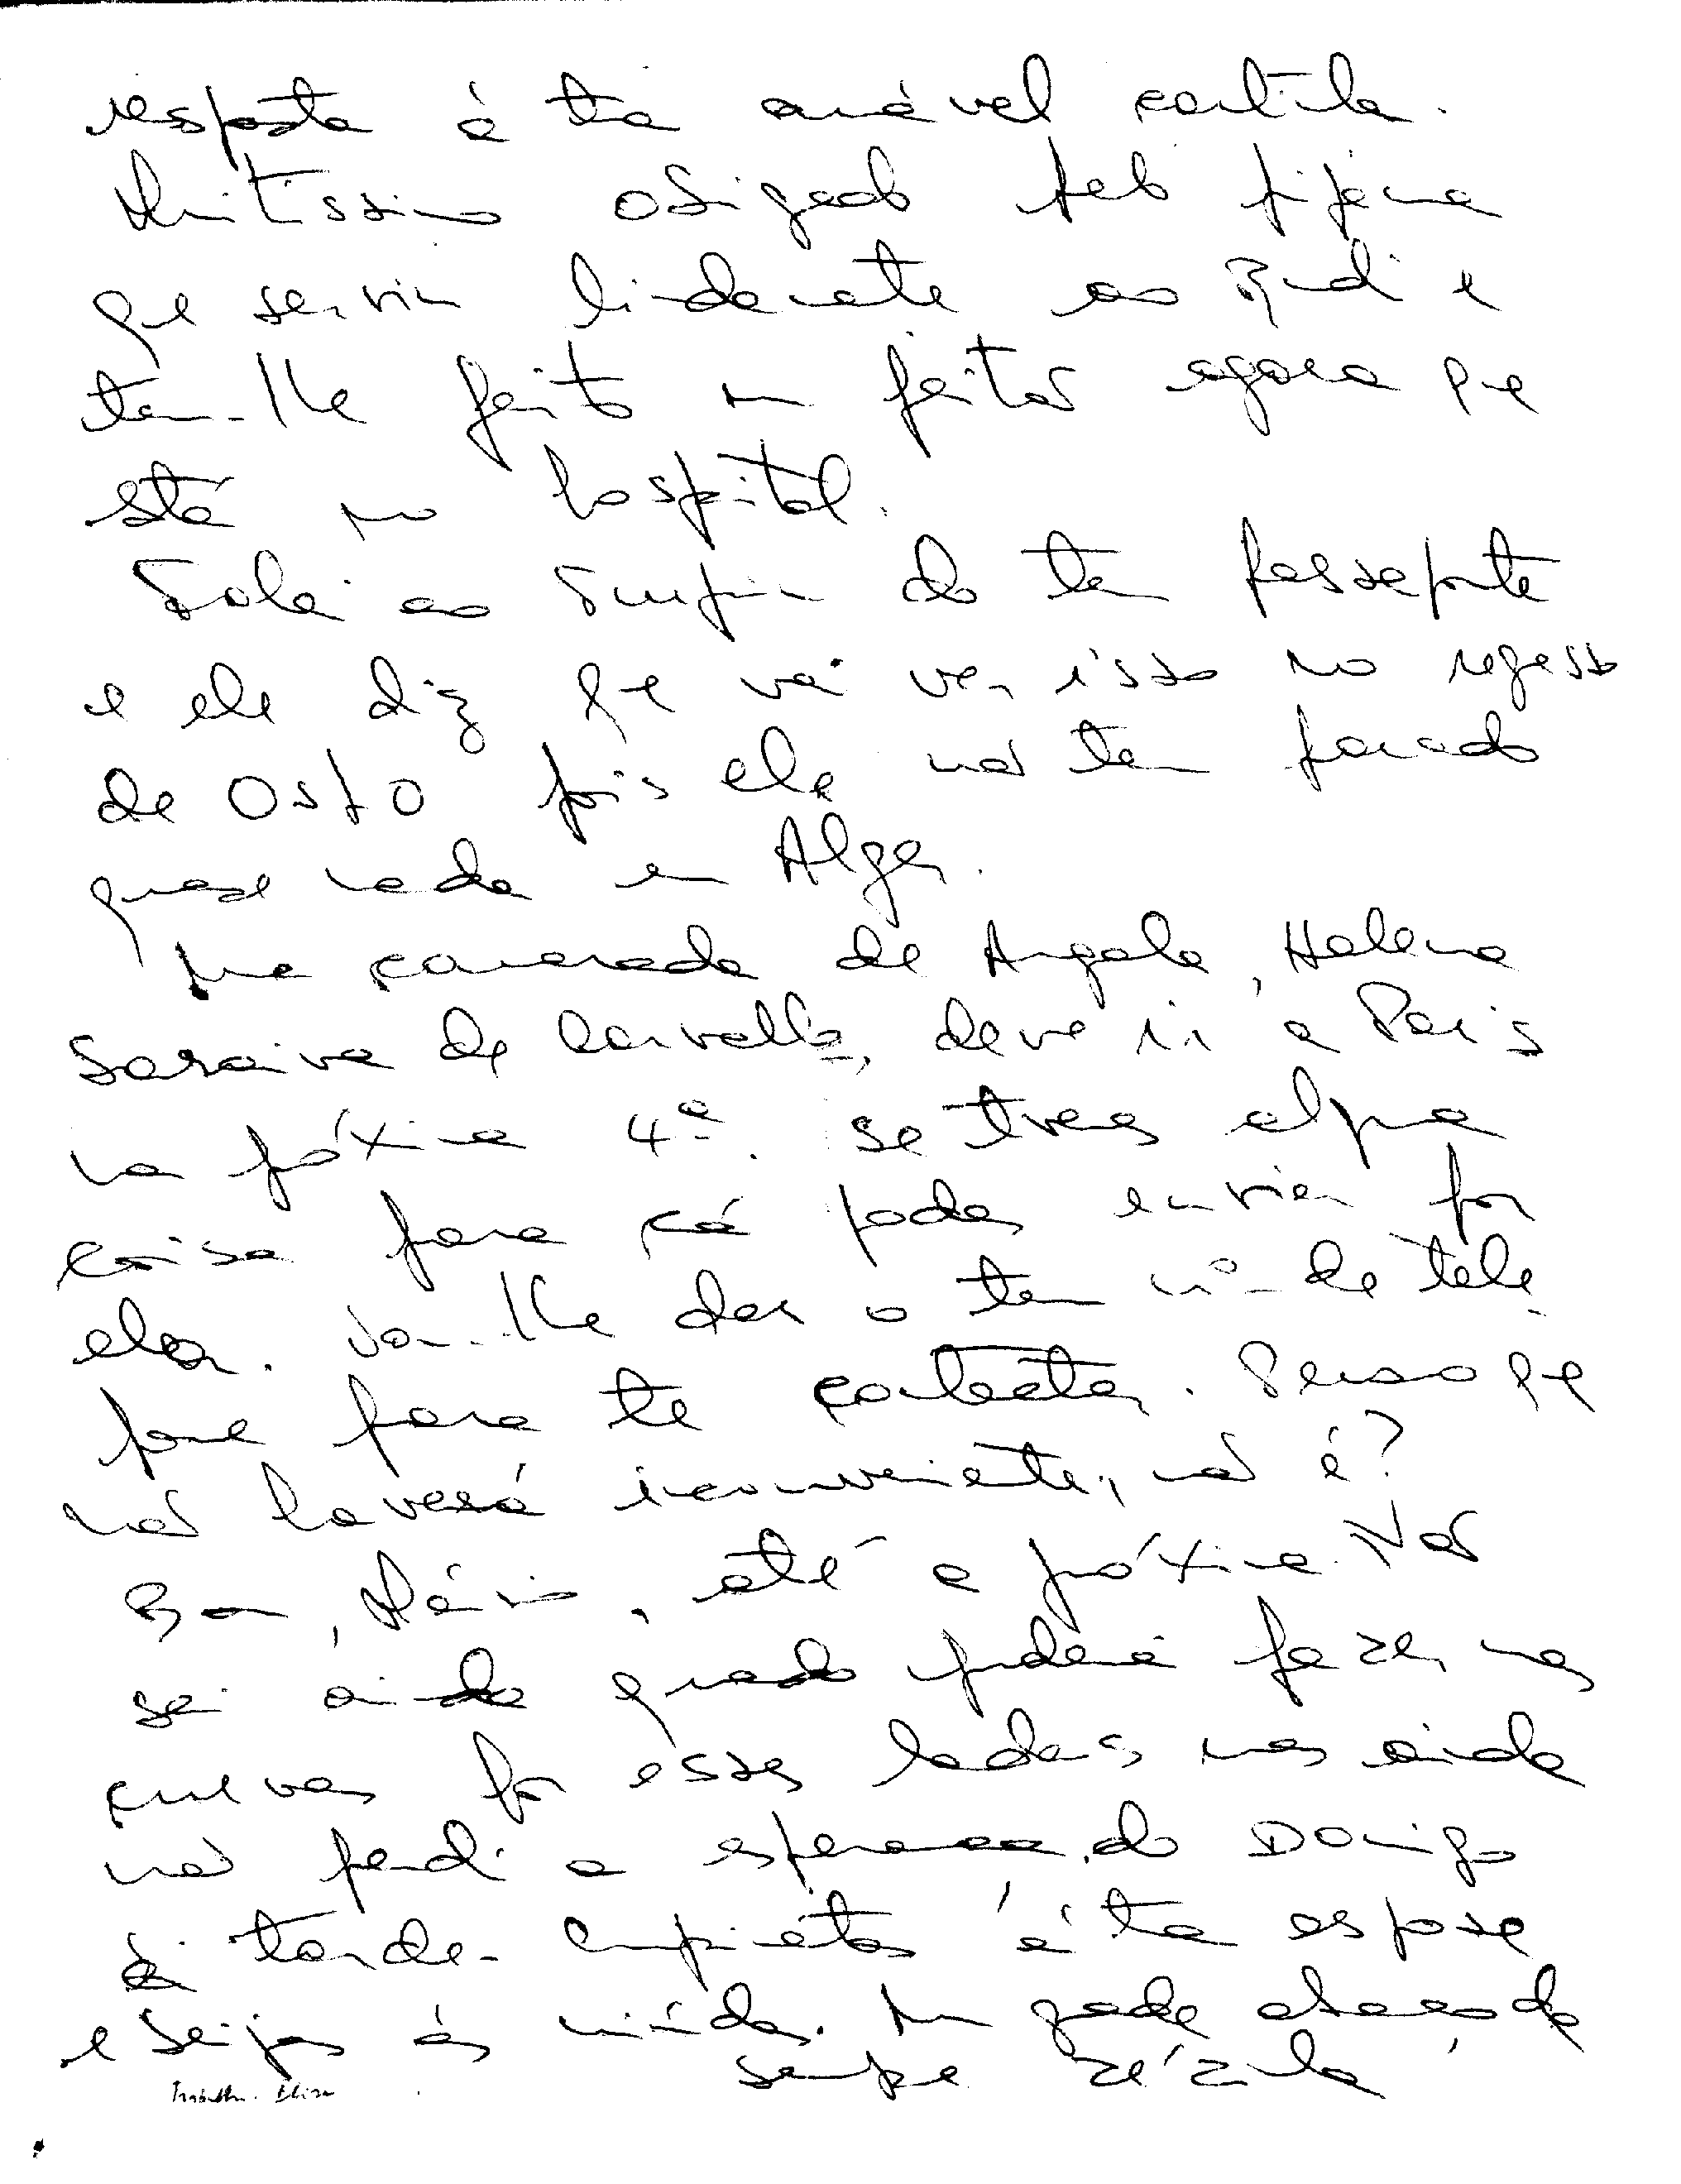 resposta à tua amável cartinha.
Muitíssimo obrigado pelo pijama
que serviu lindamente ao Rudi e
tem-lhe feito um jeitão agora que
está no hospital.
Falei ao do teu passaporte
e ele diz que vai ver isso no regresso
de Oslo pois ele não tem parado
quase nada em Alger.
Uma camarada de Angola, Helena
Saraiva de Carvalho, deve ir a Paris
na próxima 4ª. Se tiveres alguma
coisa para cá podes enviar por
ela. Vou-lhe dar o teu nº de tele-
fone para te contactar. Penso que
não haverá inconveniente, não é?
Bom, Mário, até à próxima. Não
sei ainda quando poderei fazer umas
curvas por esses lados mas ainda
não perdi a esperança do Domingo
à tarde. Cumprimentos à tua esposa
e beijos às miúdas. Um grande abraço do
sempre Zézinho